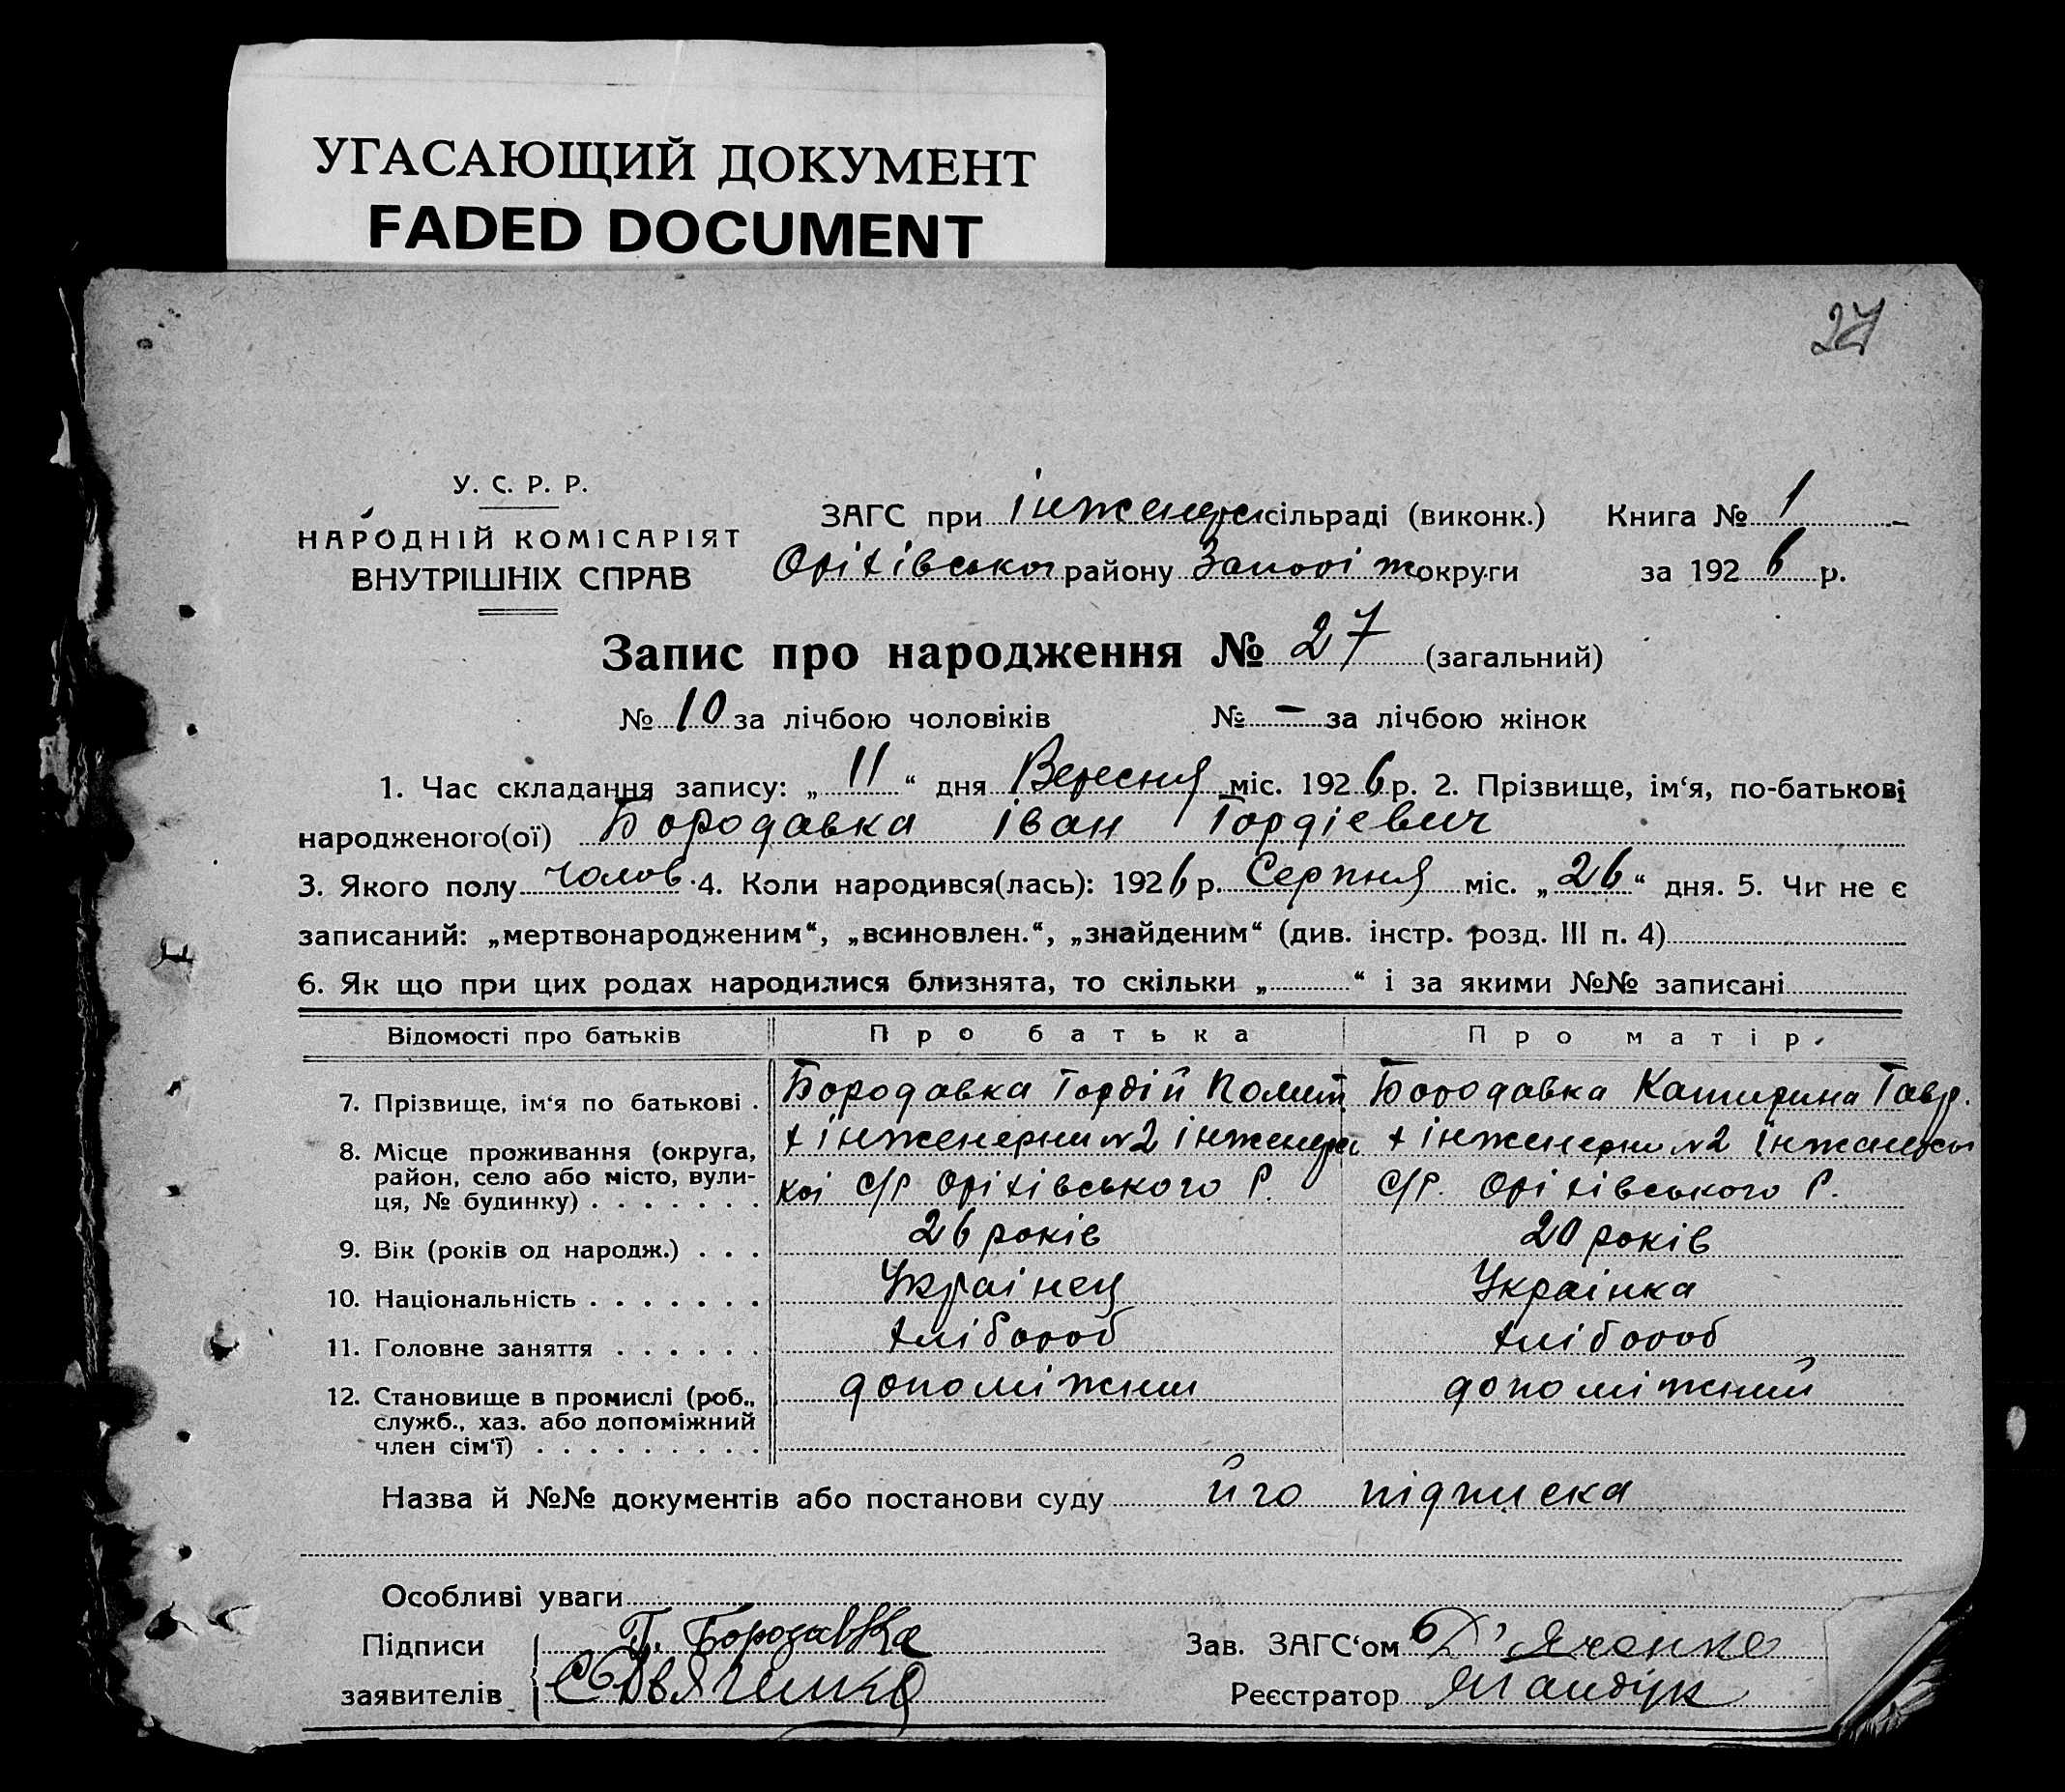 УГАСАЮЩИЙ ДОКУМЕНТ
FADED DOCUMENT
27
У. С. Р. Р.
НАРОДНІЙ КОМІСАРІЯТ
ВНУТРІШНІХ СПРАВ
ЗАГС при інженерн сільраді (виконк.) Книга № 1
Оріхівськог району Запоріж округи за 1926 р.
Запис про народження № 27 (загальний)
№ 10 за лічбою чоловіків № - за лічбою жінок
1. Час складання запису: „11“ дня Вересня міс. 1926 р. 2. Прізвище, ім‘я, по-батькові
народженого(ої) Бородавка Іван Гордієвич
3. Якого полу чолов. 4. Коли народився(лась): 1926 р. Серпня міс. „26“ дня. 5. Чи не є
записаний: „мертвонародженим“, „всиновлен.“, „знайденим“ (див. інстр. розд. III п. 4)
6. Як що при цих родах народилися близнята, то скільки „ “ і за якими №№ записані
Відомості про батьків Про батька Про матір
7. Прізвище, ім‘я по батькові . Бородавка Гордій Полит. Бородавка Катирина Гавр.
8. Місце проживання (округа, район, село або місто, вулиця, № будинку) х інженерни №2 інженерс х інженерни №2
кої С/Р Оріхівського Р. С/Р. Оріхівського Р.
9. Вік (років од народж.) . . . 26 років 20 років
10. Національність . . . . . . . Українец Українка
11. Головне заняття . . . . . . хлібороб хлібороб
12. Становище в промислі (роб., служб., хаз. або допоміжний член сім‘ї) . . . . . . . . . допоміжни допоміжний
Назва й №№ документів або постанови суду йго підписка
Особливі уваги
Підписи Г. Бородавка Зав. ЗАГС‘ом Д'яченко
заявителів Реєстратор